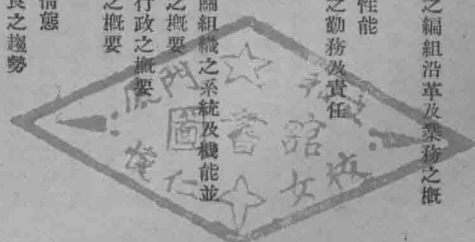 之編組沿革及業務之概
性能
之勤務及責任
關組織之系統及機能並
之概要
行政之概要
之概要
情態
良之趨勢
廈門私立
圖書館
懷仁女校